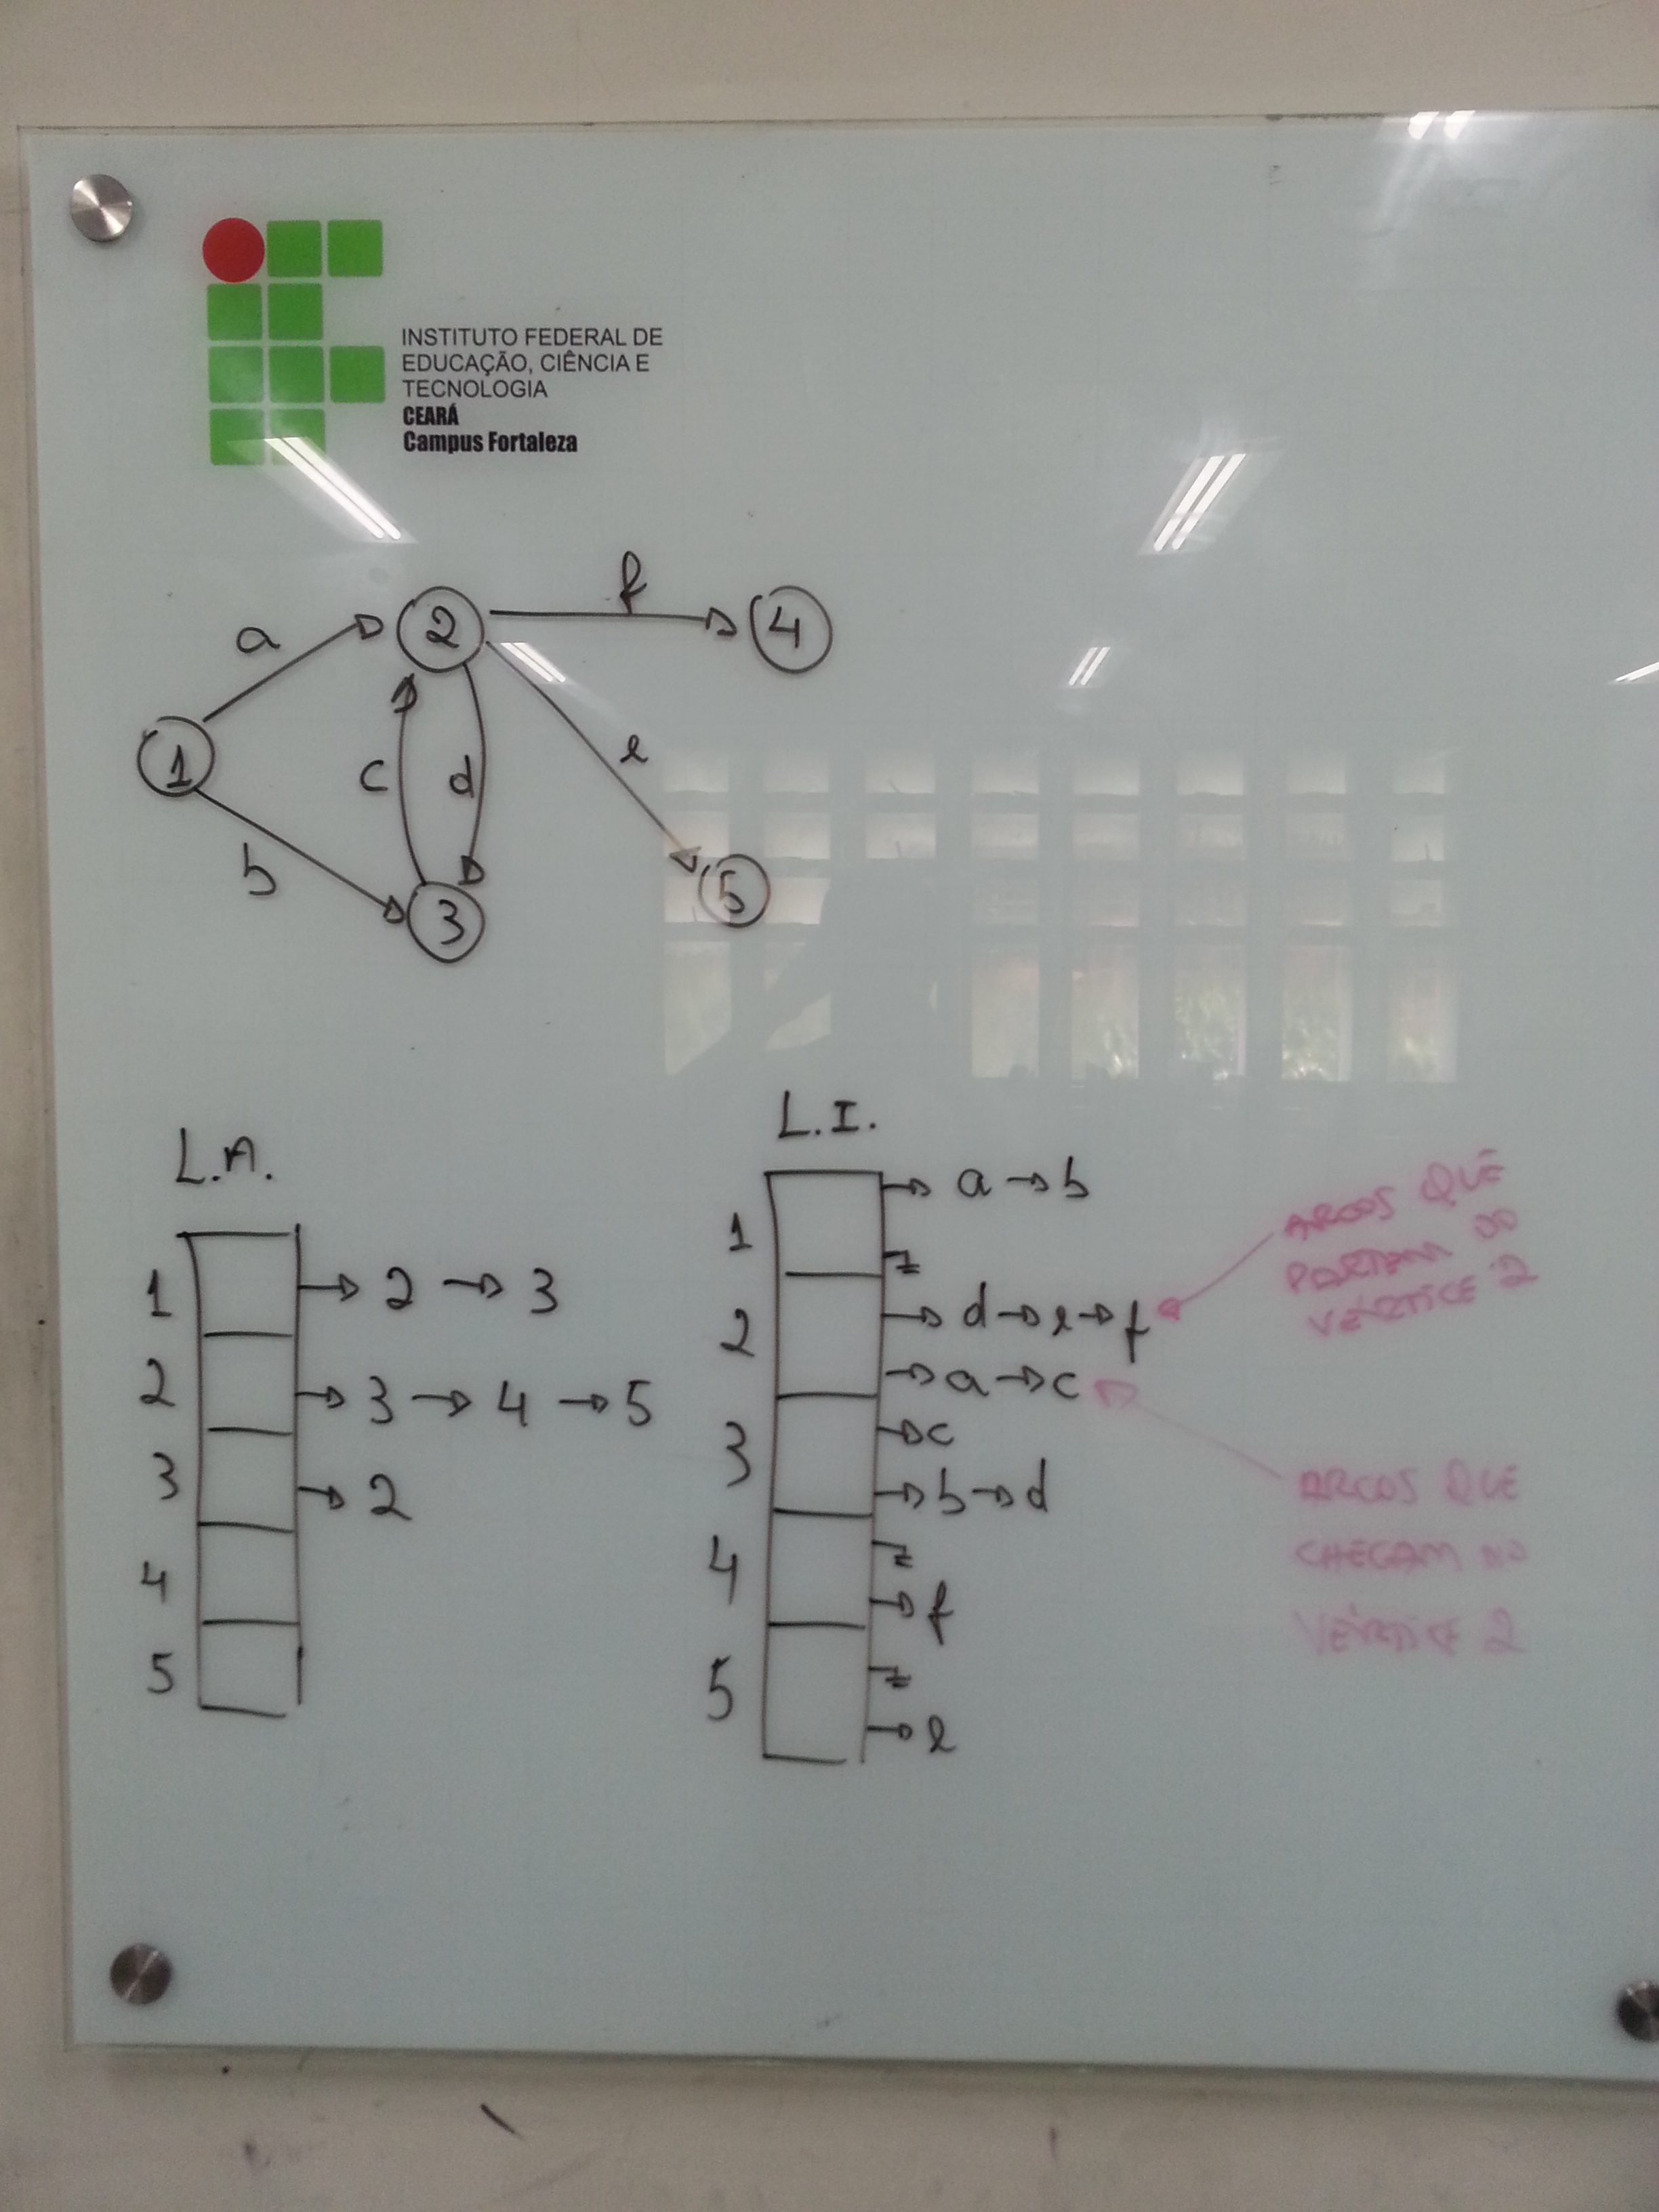 INSTITUTO FEDERAL DE
EDUCAÇÃO, CIÊNCIA E
TECNOLOGIA
CEARÁ
Campus Fortaleza
f
a
2
4
1
c
d
e
b
3
5
L.A.
1 → 2 → 3
2 → 3 → 4 → 5
3 → 2
4
5
L.I.
1 → a → b
2 → d → e → f
→ a → c
3 → c
→ b → d
4
→ f
5
→ e
ARCOS QUE
PARTEM DO
VÉRTICE 2
ARCOS QUE
CHEGAM NO
VÉRTICE 2